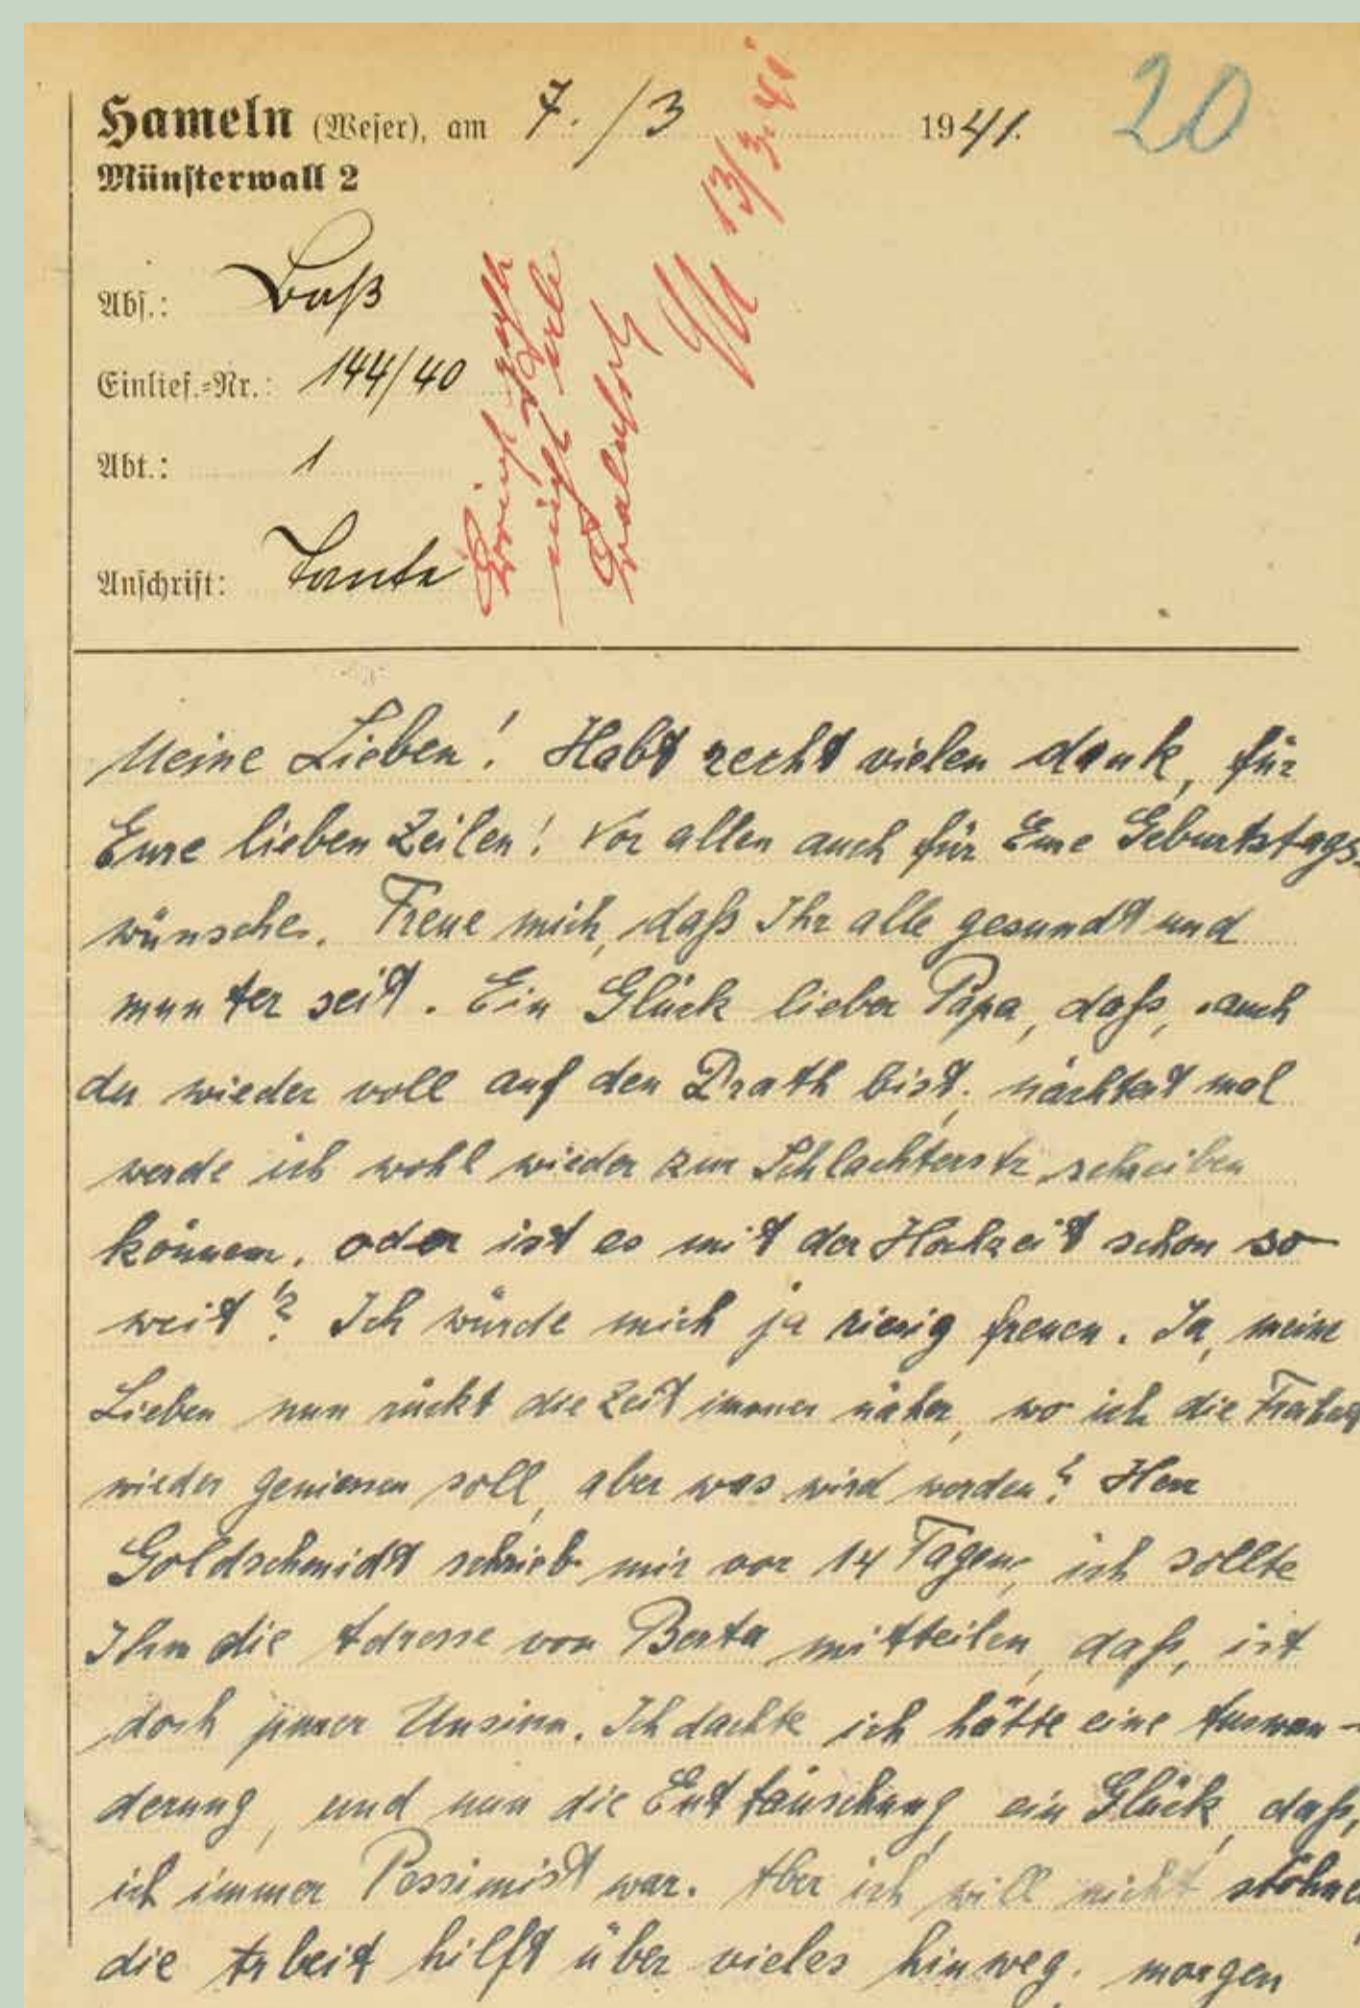 20
Hameln (Weser), am 7./3 1941.
13/3.41
Münsterwall 2
Abs.: Baß
Einlief.-Nr.: 144/40
Abt.: 1
Anschrift: Tante
nicht
Meine Lieben! Habt recht vielen dank, für
Eure lieben Zeilen! Vor allen auch für Eure Geburtstags-
wünsche. Freue mich, daß Ihr alle gesundt und
munter seit. Ein Glück lieber Papa, daß, auch
du wieder voll auf den Drath bist, nächtest mal
werde ich wohl wieder zur Schlachterstr. schreiben
können, oder ist es mit der Hochzeit schon so
weit? Ich würde mich ja riesig freuen. Ja, meine
Lieben nun rückt die Zeit immer näher, wo ich die Freiheit
wieder geniessen soll, aber was wird werden? Herr
Goldschmidt schrieb mir vor 14 Tagen, ich sollte
Ihm die Adresse von Berta mitteilen, daß, ist
doch purer Unsinn. Ich dachte ich hätte eine Auswan-
derung, und nun die Enttäuschung, ein Glück, daß,
ich immer Pessimist war. Aber ich will nicht stöhnen,
die Arbeit hilft über vieles hinweg. morgen